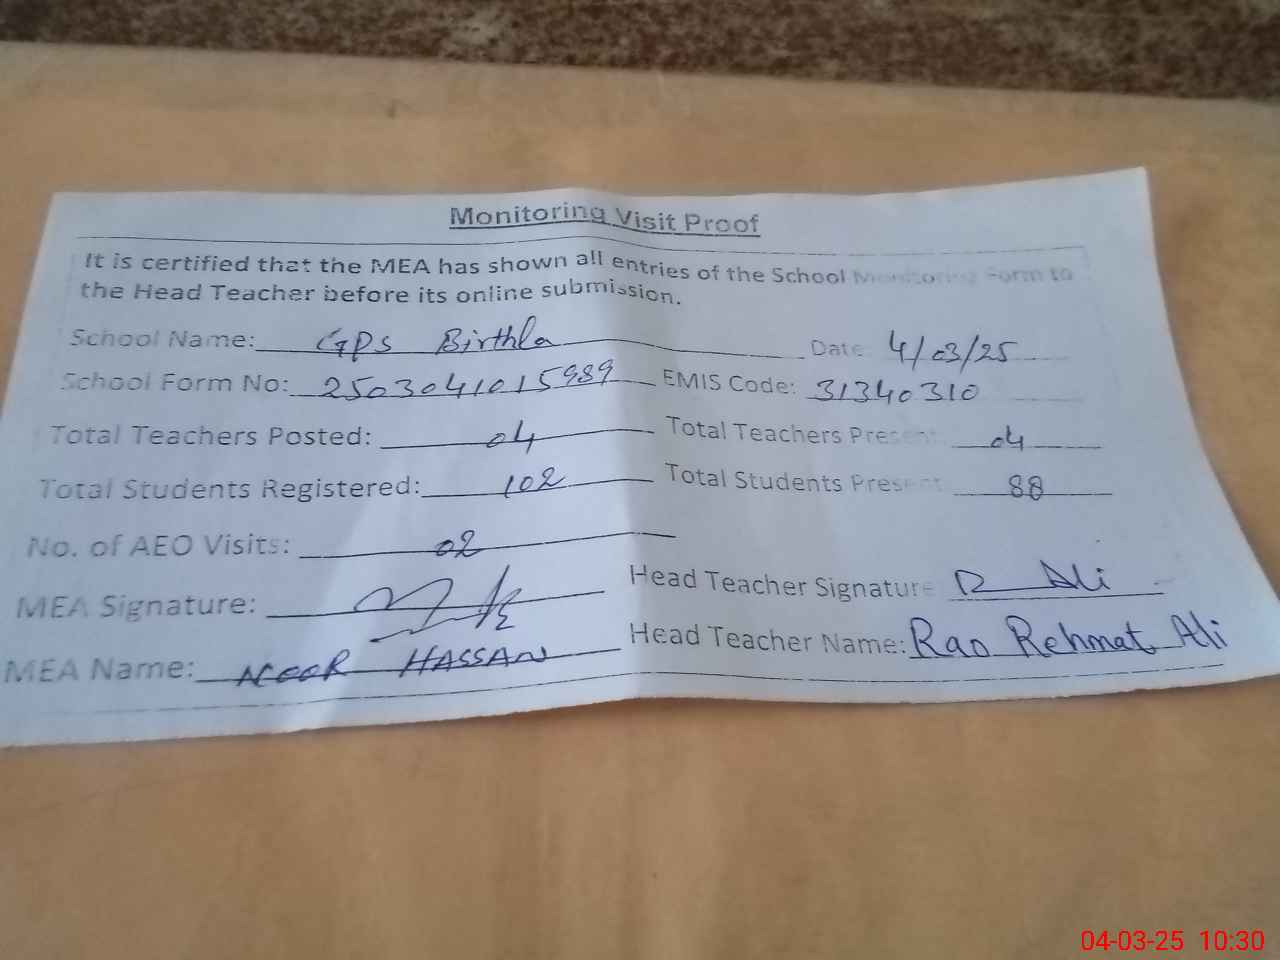 Monitoring Visit Proof
It is certified that the MEA has shown all entries of the School Monitoring Form to
the Head Teacher before its online submission.
School Name: GPS Birthla Date: 4/03/25
School Form No: 2503041015989 EMIS Code: 31340310
Total Teachers Posted: 04 Total Teachers Present: 04
Total Students Registered: 102 Total Students Present: 88
No. of AEO Visits: 02
MEA Signature: Head Teacher Signature R Ali
MEA Name: NOOR HASSAN Head Teacher Name: Rao Rehmat Ali
04-03-25 10:30